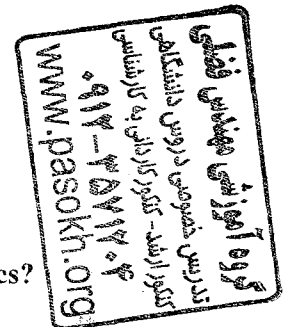 گروه آموزشی مهندس فضلی
تدریس خصوصی دروس دانشگاهی
کنکور ارشد- کنکور کاردانی به کارشناسی
۰۹۱۲-۳۵۷۱۲۰۴
www.pasokh.org
cs?